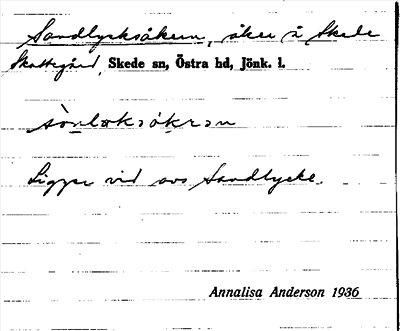 Sandlycksåkern, åker å Skede
Skattegård, Skede sn, Östra hd, Jönk. l.
sànlɔksåkrən
Ligger vid avs Sandlycke.
Annalisa Anderson 1936